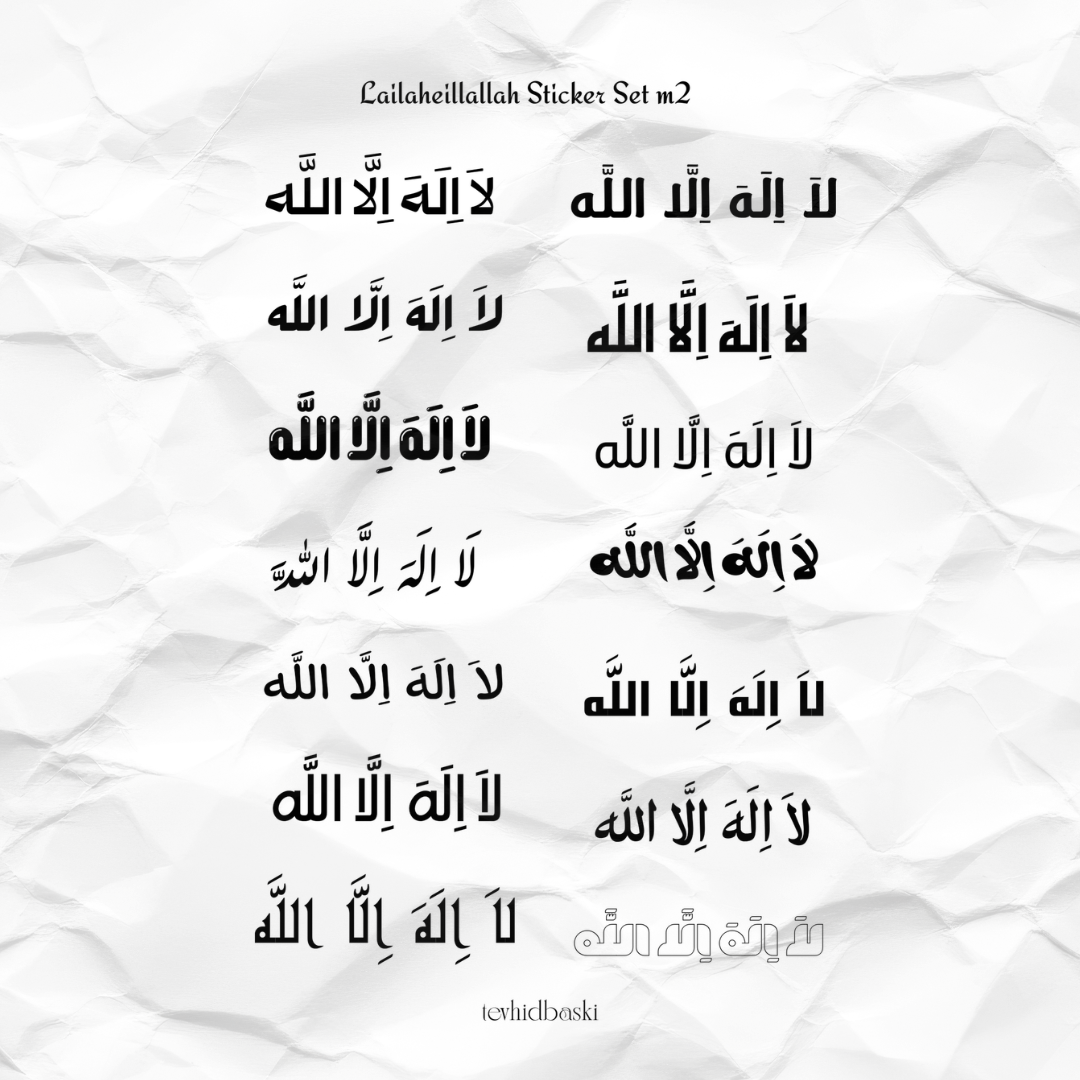 Lailaheillallah Sticker Set m2
لاَ اِلَهَ اِلَّا اللَّه
لاَ اِلَهَ اِلَّا اللَّه
لاَ اِلَهَ اِلَّا اللَّه
لاَ اِلَهَ اِلَّا اللَّه
لاَ اِلَهَ اِلَّا اللَّه
لاَ اِلَهَ اِلَّا اللَّه
لاَ اِلَهَ اِلَّا اللَّه
لاَ اِلَهَ اِلَّا اللَّه
لاَ اِلَهَ اِلَّا اللَّه
لاَ اِلَهَ اِلَّا اللَّه
لاَ اِلَهَ اِلَّا اللَّه
لاَ اِلَهَ اِلَّا اللَّه
لاَ اِلَهَ اِلَّا اللَّه
لاَ اِلَهَ اِلَّا اللَّه
tevhidbaski